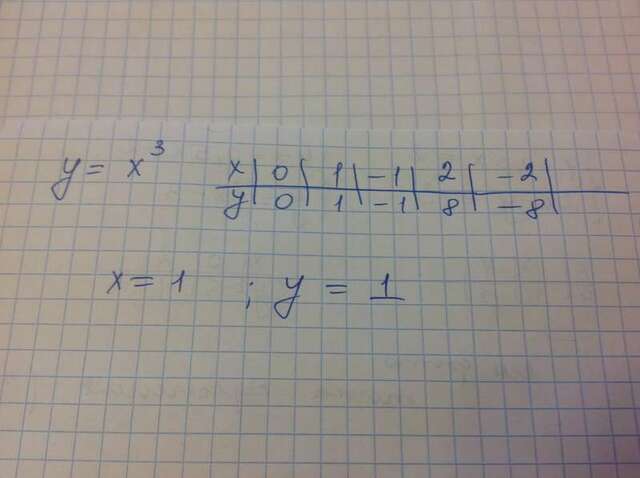 y = x³ x | 0 | 1 | -1 | 2 | -2 |
y | 0 | 1 | -1 | 8 | -8 |
x = 1 ; y = 1